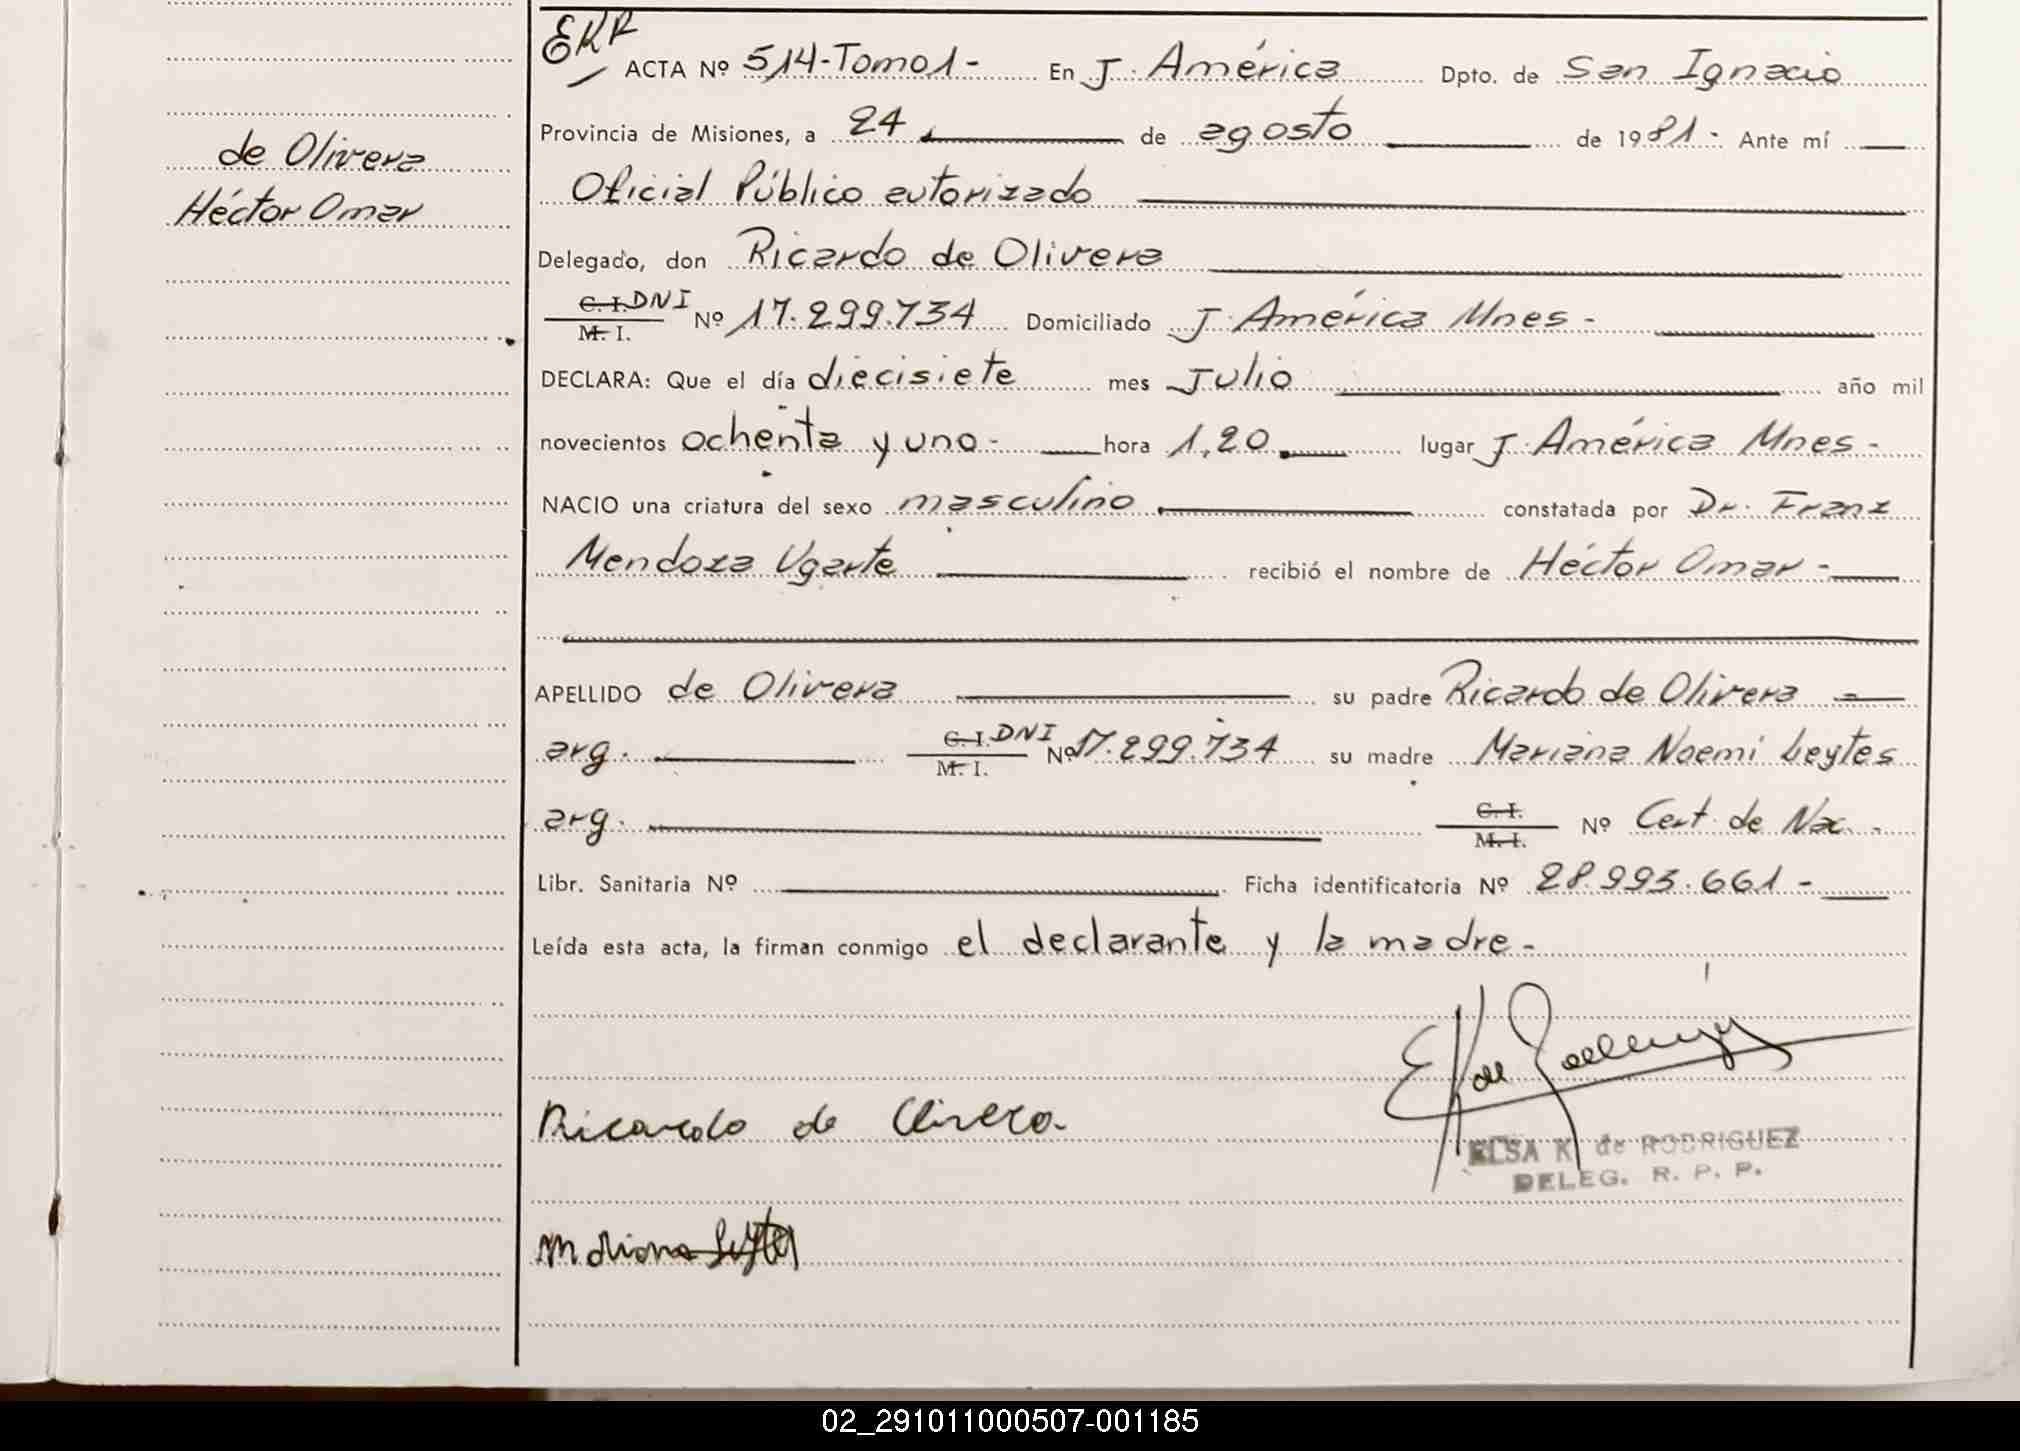 EKR
ACTA Nº 514-Tomo1- En J. América Dpto. de San Ignacio
Provincia de Misiones, a 24 de agosto de 1981- Ante mí
de Olivera
Héctor Omar
Oficial Público autorizado
Delegado, don Ricardo de Olivera
C. I. DNI
M. I.
Nº 17.299.734 Domiciliado J. América Mnes-
DECLARA: Que el día diecisiete mes Julio año mil
novecientos ochenta y uno- hora 1,20 lugar J. América Mnes-
NACIO una criatura del sexo masculino constatada por Dr. Franz
Mendoza Ugarte recibió el nombre de Héctor Omar-
APELLIDO de Olivera su padre Ricardo de Olivera
arg. C. I. DNI
M. I.
Nº 17.299.734 su madre Mariana Noemi Leytes
arg. C. I.
M. I.
Nº Cert. de Nac.-
Libr. Sanitaria Nº Ficha identificatoria Nº 28.993.661-
Leída esta acta, la firman conmigo el declarante y la madre-
Ricardo de Olivera
ELSA K. de RODRIGUEZ
DELEG. R. P. P.
Mariana Leytes
02_291011000507-001185